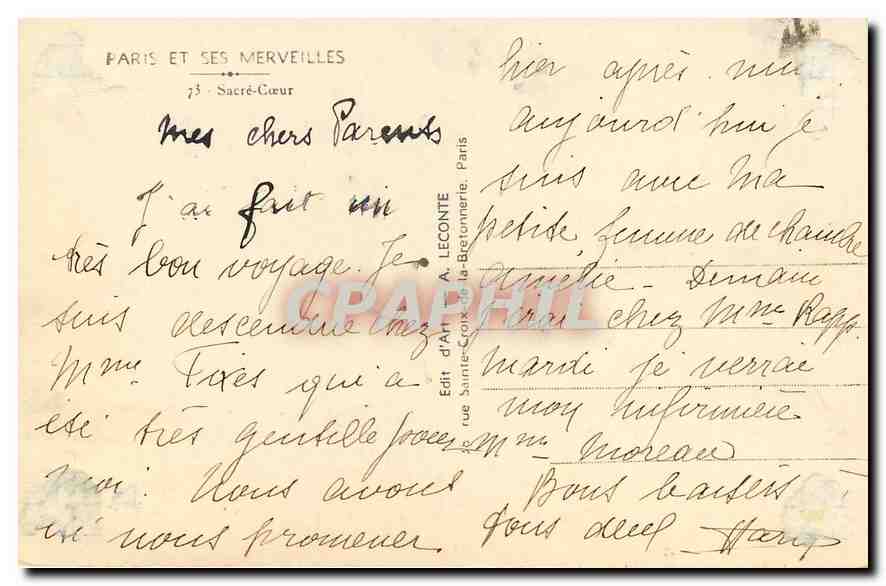 PARIS ET SES MERVEILLES
73 - Sacré-Cœur
mes chers Parents
J'ai fait un
très bon voyage. Je
suis descendue chez
Mme Fixes qui a
été très gentille pour
moi. Nous avons
été nous promener
Edit d'Art A. LECONTE
rue Sainte-Croix-de-la-Bretonnerie, Paris
hier après midi
aujourd'hui je
suis avec ma
petite femme de chambre
Amélie - Demain
j'irai chez Mme Rapp.
mardi je verrai
mon infirmière
Mme Moreau
Bons baisers à
tous deux
CPAPHIL